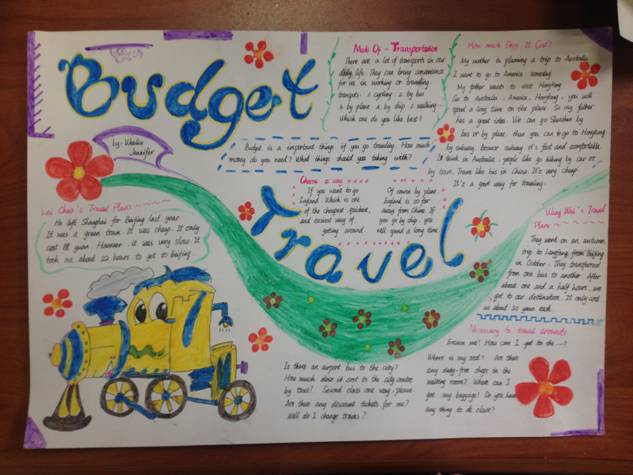 Budget
Travel
by: Wealth
Jennifer
Budget is a important things of you go traveling. How much
money do you need? What things should you taking with?
Mode Of - Transportation
There are a lot of transports in our
daily life. They can bring convenience
for us in working or travelling.
transports: 1 cycling 2. by bus
3. by plane 4. by ship 5. walking.
Which one do you like best?
How much Does It Cost?
My mother is planning a trip to Australia.
I want to go to America someday.
My father wants to visit Hongkong.
Go to Australia, America, Hongkong, you will
spend a long time on the plane. So my father
has a good idea. We can go Shenzhen by
bus or by plane, then you can go to Hongkong
by subway, because subway it's fast and comfortable.
I think in Australia, people like go hiking by car or
by town. Trains like bus in China. It's very cheap.
It's a good way for traveling.
Choose a way
If you want to go
England. Which is one
of the cheapest, quickest,
and easiest way of
getting around.
Of course by plane.
England is so far
away from China. If
you go by ship, you
will spend a long time.
Lei Chao's Travel Plans
He left Shanghai for Beijing last year.
It was a green train. It was cheap. It only
cost 111 yuan. However, it was very slow. It
took me about 22 hours to get to Beijing.
Wang Wei's Travel
Plans
They went on an autumn
trip to from Beijing
in October. They transferred
from one bus to another. After
about one and a half hours, we
got to our destination. It only cost
us about 20 yuan each.
Necessary to travel accounts
Excuse me! How can I get to the ...?
Where is my seat? Are there
any duty-free shops in the
waiting room? Where can I
get my baggage? Do you have
any thing to declare?
Is there an airport bus to the city?
How much does it cost to the city centre
by taxi? Second class one way, please.
Are there any discount tickets for me?
Will do I change trains?